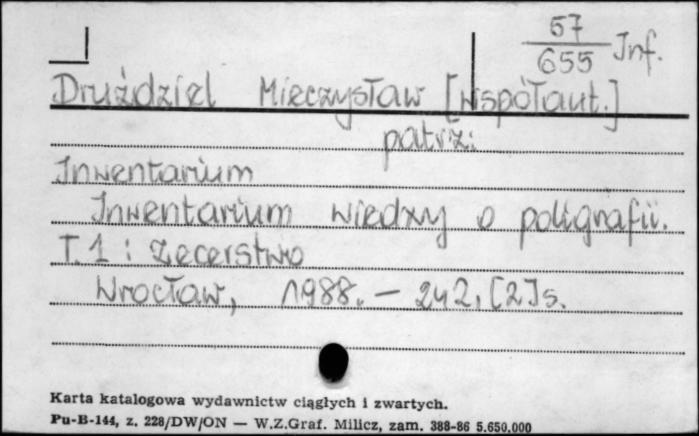 57
655 Inf.
Drużdziel Mieczysław [współaut.]
patrz:
Inwentarium
Inwentarium wiedzy o poligrafii.
T. 1 : Zecerstwo
Wrocław, 1988. — 242, [2] s.
Karta katalogowa wydawnictw ciągłych i zwartych.
Pu-B-144, z. 228/DW/ON — W.Z.Graf. Milicz, zam. 388-86 5.650.000